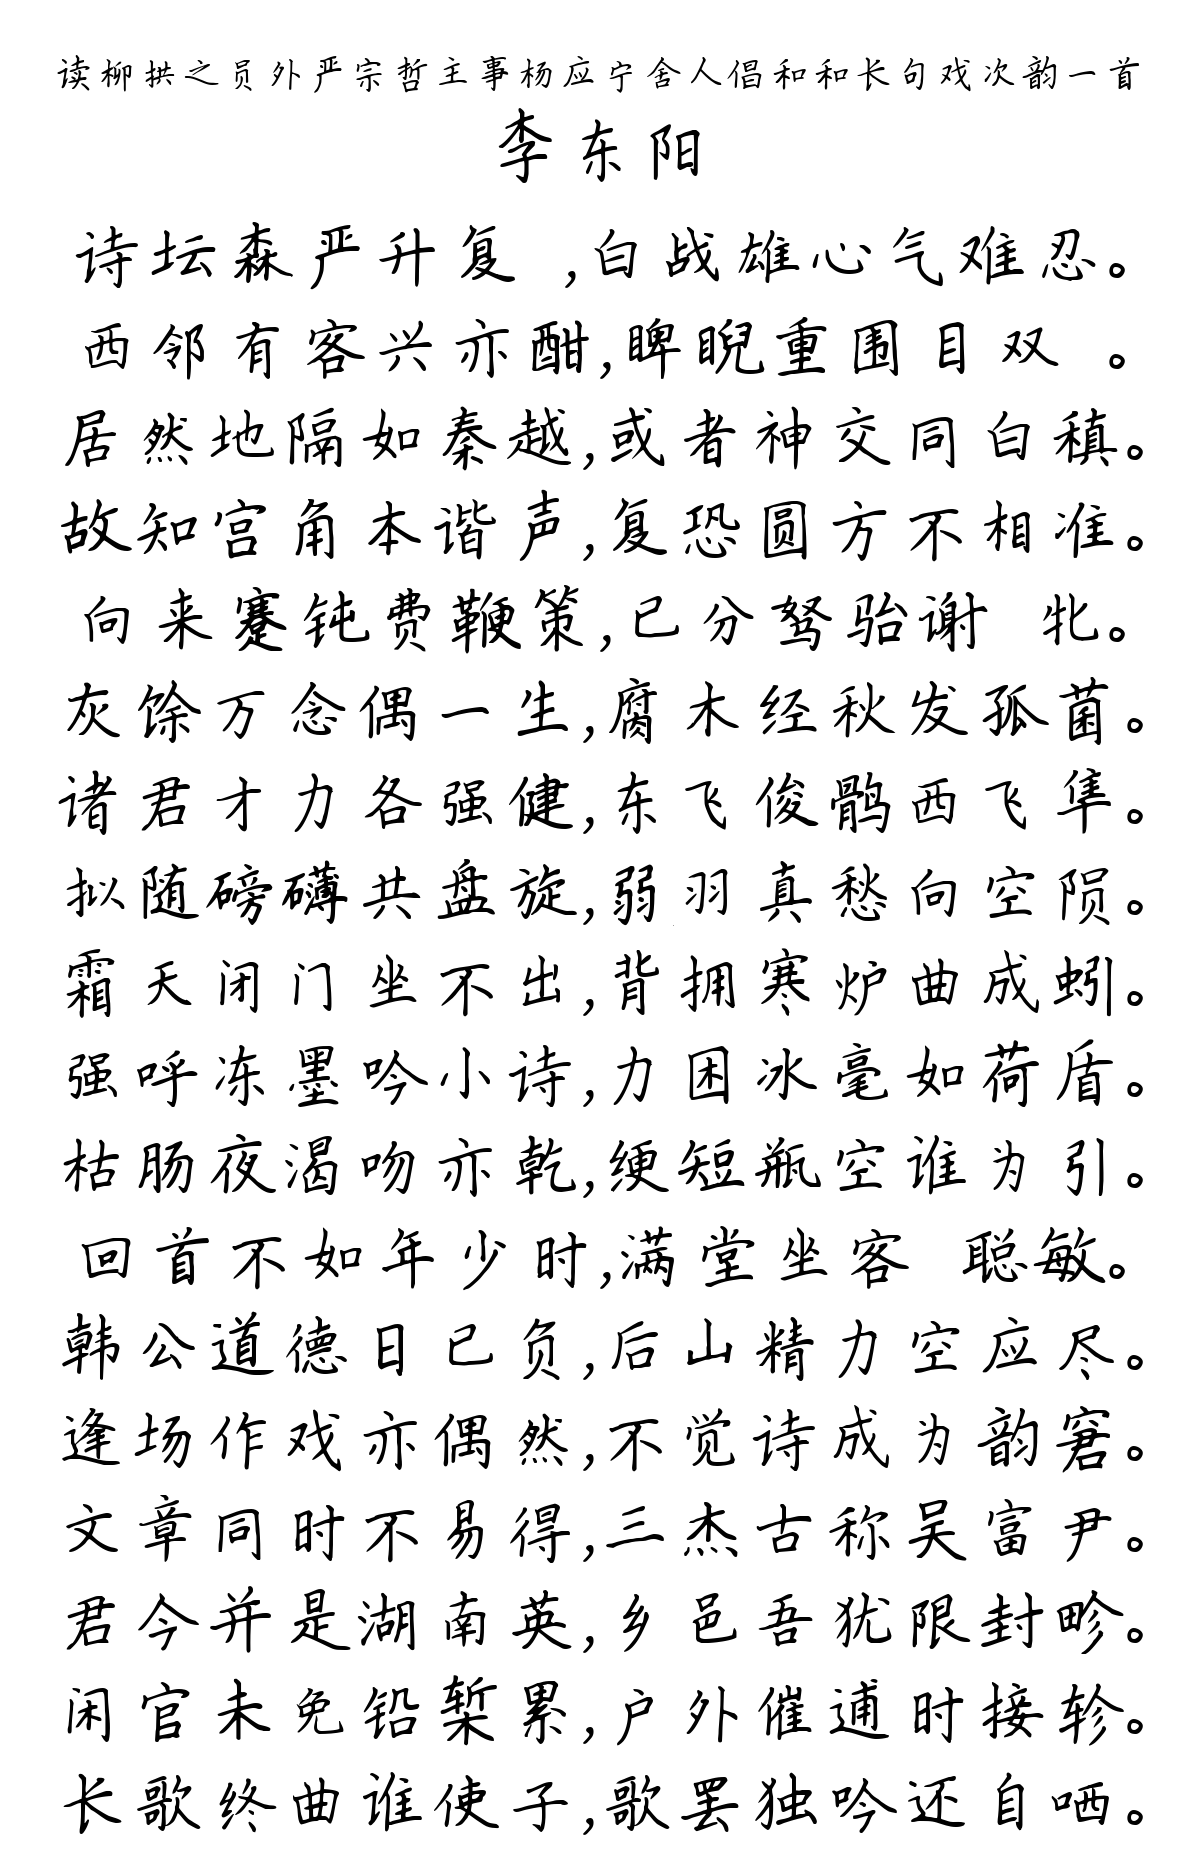 读柳拱之员外严宗哲主事杨应宁舍人倡和和长句戏次韵一首
李东阳
诗坛森严升复 ,白战雄心气难忍。
西邻有客兴亦酣,睥睨重围目双 。
居然地隔如秦越,或者神交同白稹。
故知宫角本谐声,复恐圆方不相准。
向来蹇钝费鞭策,已分驽骀谢 牝。
灰馀万念偶一生,腐木经秋发孤菌。
诸君才力各强健,东飞俊鹘西飞隼。
拟随磅礴共盘旋,弱羽真愁向空陨。
霜天闭门坐不出,背拥寒炉曲成蚓。
强呼冻墨吟小诗,力困冰毫如荷盾。
枯肠夜渴吻亦乾,绠短瓶空谁为引。
回首不如年少时,满堂坐客 聪敏。
韩公道德日已负,后山精力空应尽。
逢场作戏亦偶然,不觉诗成为韵窘。
文章同时不易得,三杰古称吴富尹。
君今并是湖南英,乡邑吾犹限封畛。
闲官未免铅椠累,户外催逋时接轸。
长歌终曲谁使子,歌罢独吟还自哂。